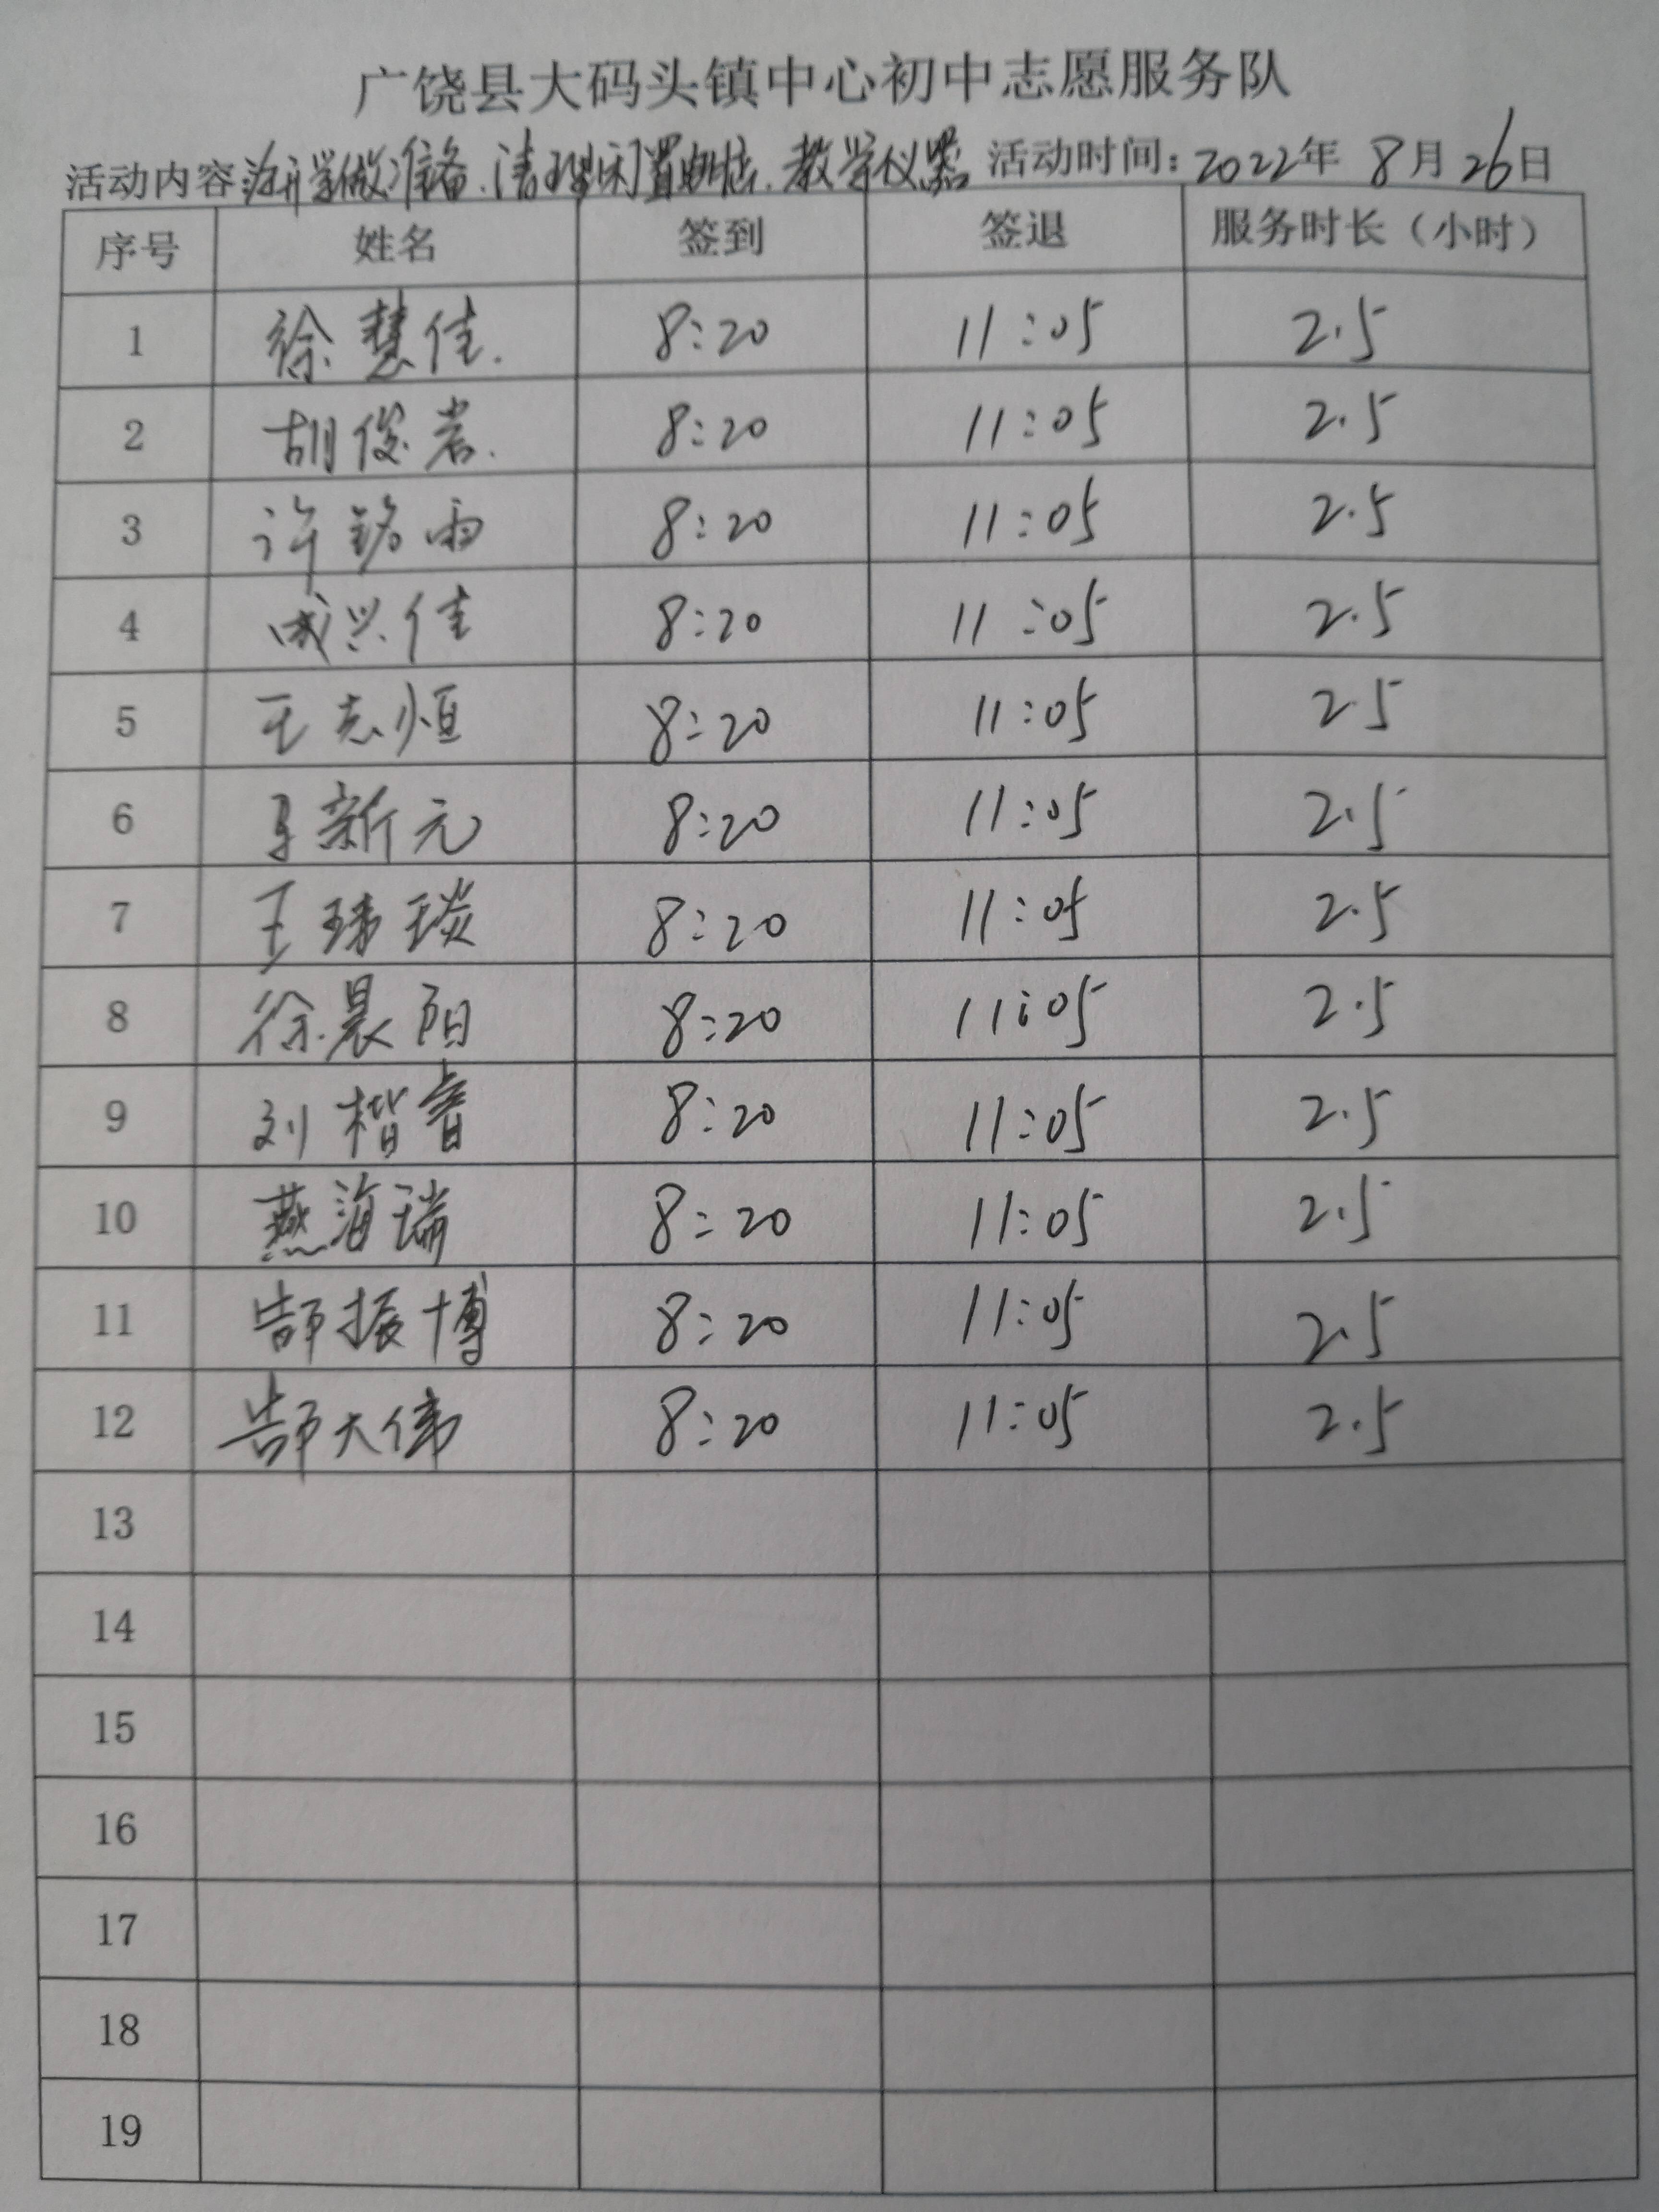 广饶县大码头镇中心初中志愿服务队
活动内容 为开学做准备、清理闲置教学仪器 活动时间：2022年 8月26日
序号 姓名 签到 签退 服务时长（小时）
1 徐慧佳. 8:20 11:05 2.5
2 胡俊岩. 8:20 11:05 2.5
3 许铭雨 8:20 11:05 2.5
4 成兴佳 8:20 11:05 2.5
5 王志恒 8:20 11:05 2.5
6 马新元 8:20 11:05 2.5
7 王琰 8:20 11:05 2.5
8 徐晨阳 8:20 11:05 2.5
9 刘楷睿 8:20 11:05 2.5
10 燕海瑞 8:20 11:05 2.5
11 郜振博 8:20 11:05 2.5
12 郜大伟 8:20 11:05 2.5
13
14
15
16
17
18
19